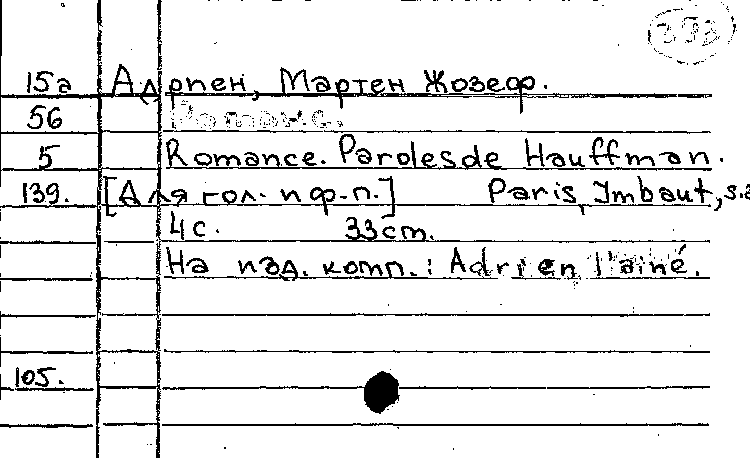 393
15а Адриен, Мартен Жозеф.
56 Романс.
5 Romance. Paroles de Hauffman.
139. [Для гол. и ф-п.] Paris, Imbaut, s.a
4с. 33cm.
На изд. комп.: Adrien l'ainé.
105.